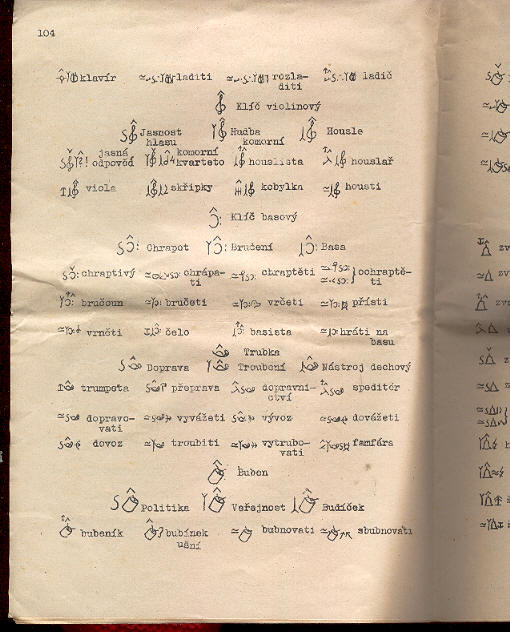 104
klavír laditi rozla- ladič
diti
Klíč violinový
Jasnost Hudba Housle
hlasu komorní
jasná komorní
odpověď kvarteto houslista houslař
viola skřipky kobylka housti
Klíč basový
Chrapot Bručení Basa
chraptivý chrápa- chraptěti ochraptě-
ti ti
bručoun bručeti vrčeti přísti
vrněti čelo basista hráti na
basu
Trubka
Doprava Troubení Nástroj dechový
trumpeta přeprava dopravni- speditér
ctví
dopravo- vyvážeti vývoz dovážeti
vati
dovoz troubiti vytrubo- famfára
vati
Buben
Politika Veřejnost Budíček
bubeník bubínek bubnovati sbubnovati
ušní